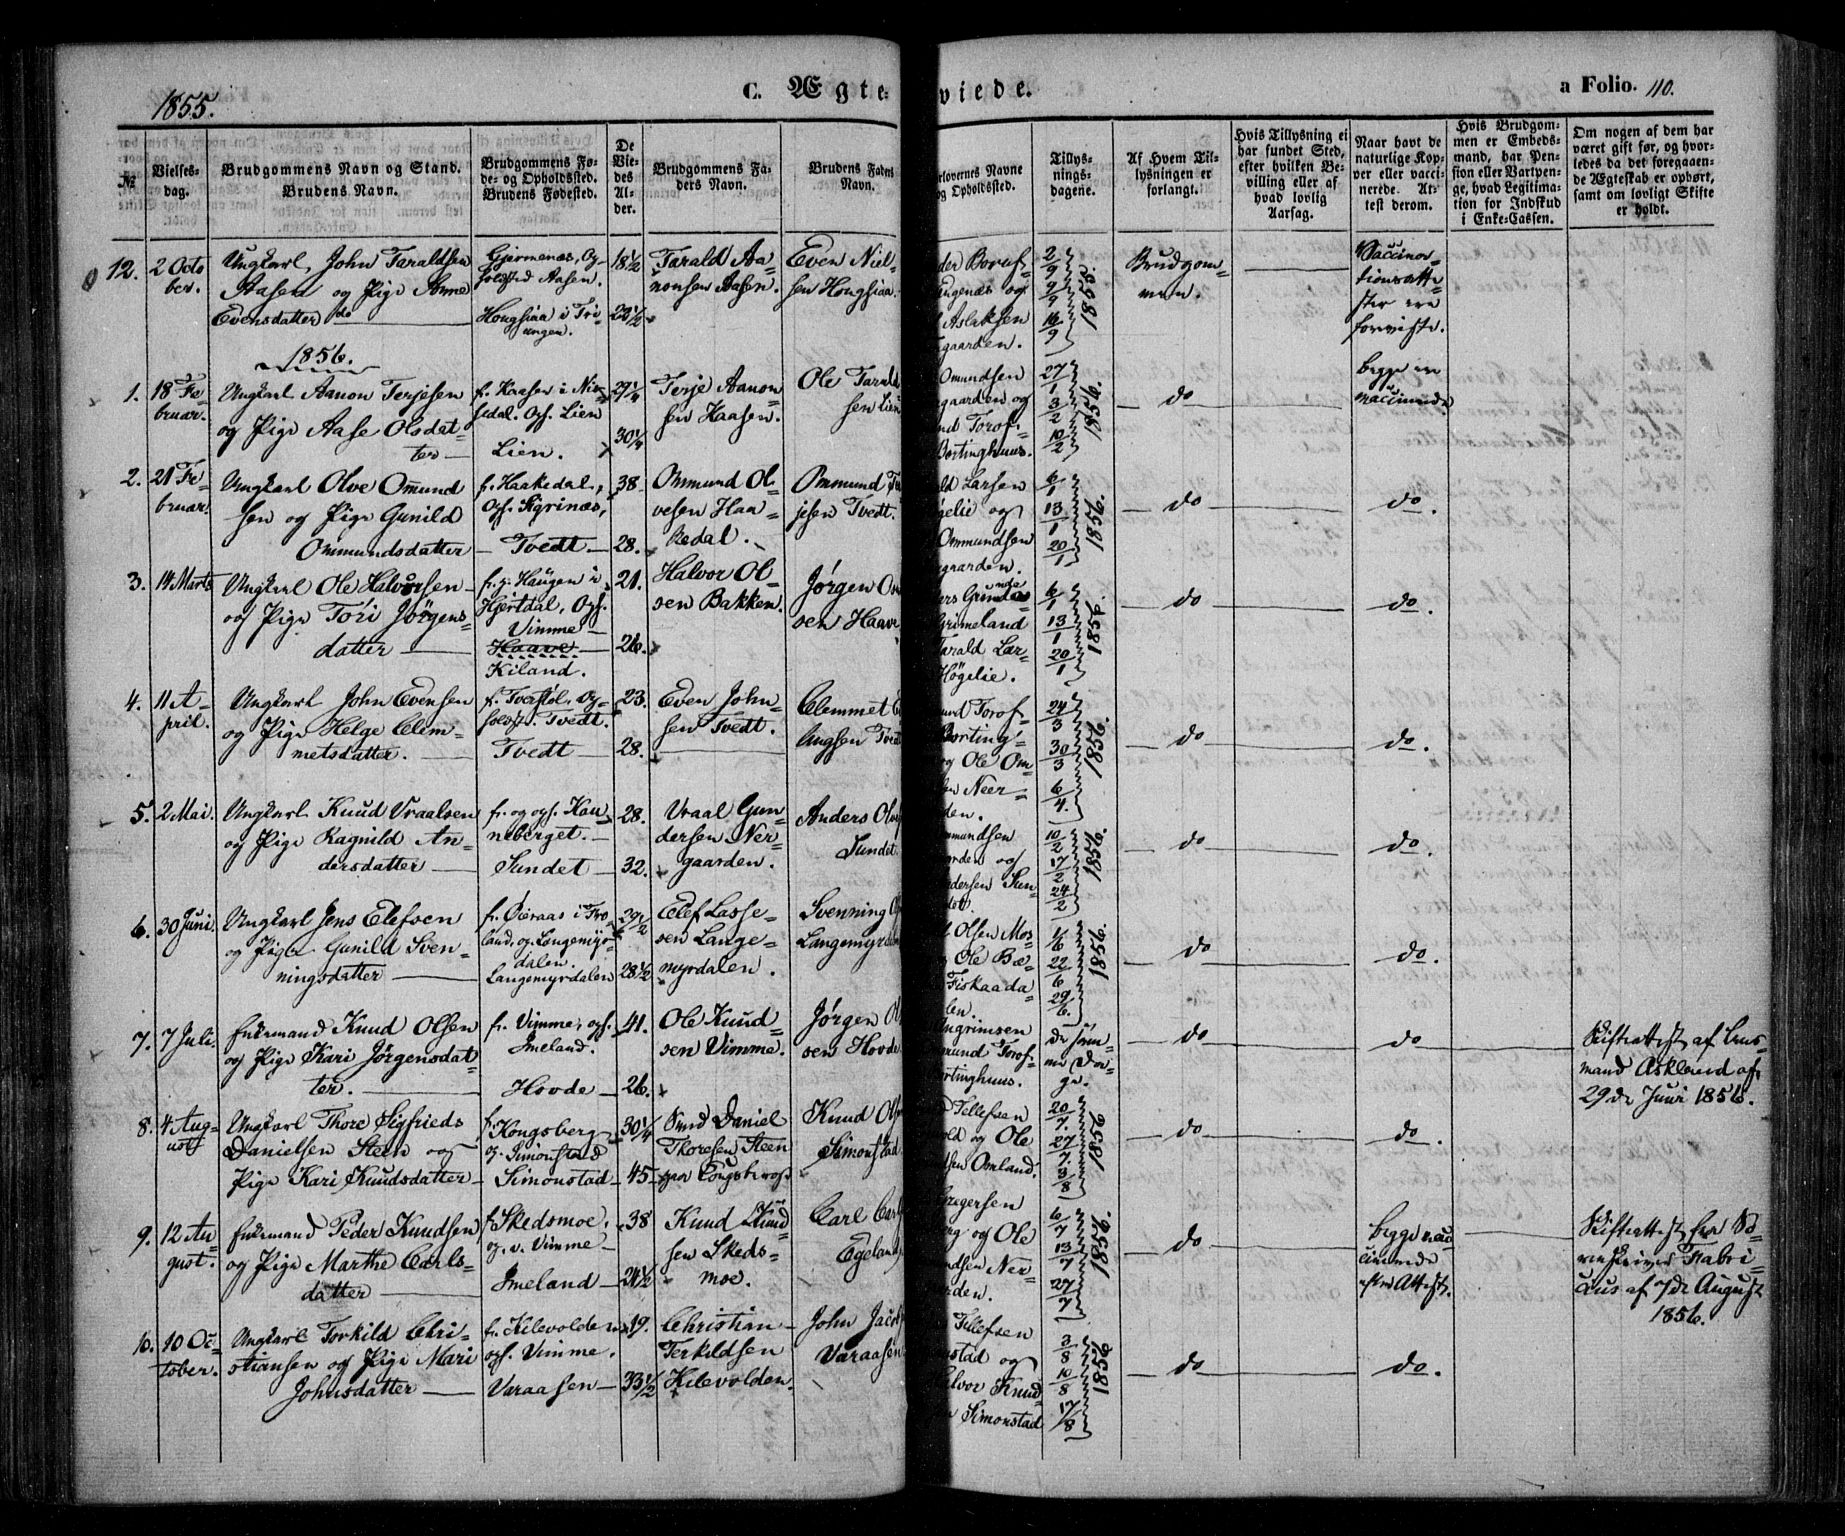 1855.
C. Ægteviede.
a Folio. 110.
№
Vielses-
dag.
Brudgommens Navn og Stand.
Brudens Navn.
Brudgommens Fø-
de- og Opholdssted.
Brudens Fødested.
De
Vie-
des
Al-
der.
Brudgommens Fa-
ders Navn.
Brudens Faders
Navn.
orlovernes Navne
og Opholdssted.
Tillys-
nings-
dagene.
Af Hvem Til-
lysningen er
forlangt.
Hvis Tillysning ei
har fundet Sted,
efter hvilken Be-
villing eller af
hvad lovlig
Aarsag.
Naar havt de
naturlige Kop-
per eller vacci-
nerede. At-
test derom.
Hvis Brudgom-
men er Embeds-
mand, har Pen-
sion eller Vartpen-
ge, hvad Legitima-
tion for Indskud
i Enke-Cassen.
Om nogen af dem har
været gift før, og hvor-
ledes da det foregaaen-
de Ægteskab er ophørt,
samt om lovligt Skifte
er holdt.
12. 2 Octo
ber.
Ungkarl, John Taraldsen
Aasen og Pige Anne
Evensdatter do
Gjermenæs, Op-
holdsted Aasen.
Hougsiaa i Tre-
ungen.
18½
23½
Tarald Aa-
nonsen Aasen.
Even Niel-
sen Hougsiaa.
der Boraf
Eugenæs og
Aslaksen
gaarden.
2/9
9/9
16/9
1855.
Brudgom-
men.
Vaccina-
tionsatte-
ster ere
foreviste.
1856.
1. 18 Fe-
bruar.
Ungkarl Aanon Terjesen
og Pige Aase Olsdat-
ter
f. Haasen i Nis-
sedal. Oph. Lien
Lien.
29¼
30¼
Terje Aanon-
sen Haasen.
Ole Tarald
sen Lien
Omundsen
gaarden og
und Torof-
Bortinghuus.
27/1
3/2
10/2
1856.
do
begge ere
vaccinerede
2. 21 Fe-
bruar.
Ungkarl Olve Omund
sen og Pige Gunild
Ommundsdatter
f. Haakedal,
Oph. Sigrinæs,
Tvedt
38.
28.
Ommund Ol-
vesen Haa-
kedal.
Ommund Ter
jesen Tvedt.
ld Larsen
øgelie og
Ommundsen
gaarden.
6/1
13/1
20/1
1856.
do
do.
3. 14 Marts
Ungkarl Ole Halvorsen
og Pige Tori Jørgens-
datter
f. p. Haugen i
Hjertdal, Oph.
Vimme
Haave
Kiland.
21.
26.
Halvor Ol-
sen Bakken.
Jørgen O
sen Haave
ers Gundes
Grimeland
Tarald Lar-
Høgelie.
6/1
13/1
20/1
1856.
do
do.
4. 11 A-
pril.
Ungkarl John Evensen
og Pige Helge Clem-
metsdatter.
f. Tverstøl, Op-
holdst. Tvedt.
Tvedt
23.
28.
Even John-
sen Tvedt.
Clemmet
laugsen Tvedt
und Torof-
Borting-
og Ole Om-
en Neer-
den.
24/3
30/3
6/4.
1856.
do
do.
5. 2 Mai.
Ungkarl Knud Vraalsen
og Pige Ragnild An-
dersdatter
fr. og oph. Hau-
neberget.
Sundet
28.
32.
Vraal Gun-
dersen Ner-
gaarden.
Anders Ol
Sundet
mmundsen
arden og
ndersen Sun-
det.
10/2
17/2
24/2
1856.
do
do.
6. 30 Juni.
Ungkarl Jens Elefsen
og Pige Gunild Sven-
ningsdatter
fr. Øieraas i Fro-
land, og Langemyr-
dalen.
Langemyrdalen
29½
28½
Elef Lasse-
sen Lange-
myrdalen.
Svenning O
Langemyrdalen
Olsen Mos-
g Ole Bæ-
Fiskaada-
len.
1/6
22/6
29/6.
1856.
do
do.
7. 7 Juli.
Enkemand Knud Olsen
og Pige Kari Jørgensdat-
ter.
fr. Vimme, oph.
Imeland.
Hovde
41.
26.
Ole Knud-
sen Vimme.
Jørgen Ol
sen Hovde
Angrimsen
mund Torof-
ortinghuus.
de sam-
me Da-
ge.
do
do
Skifteattest af Lens-
mand Askland af
29de Juni 1856.
8. 4 Aug-
ust
Ungkarl Thore Sigfrieds
Danielsen Steen og
Pige Kari Knudsdatter
f. Kongsberg
og. Simonstad
Simonstad
30¼
45
Daniel
Thoresen Steen
paa Congsberg.
Knud Ols
Simonstad
Tellefsen
old og Ole
dsen Omland.
20/7.
27/7.
3/8
1856
do
do.
9. 12 Au-
gust.
Enkemand Peder Knudsen
og Pige Marthe Carls-
datter
f. Skedsmoe.
og. v. Vimme
Imeland
38
24½
Knud Knud
sen Skeds-
moe.
Carl Carl
Egeland
Gregersen
erg og Ole
ndsen Ner-
rden.
6/7
13/7
27/7
1856.
do
begge vac
cinerede
efter Attest.
Skifteattest fra So-
renskriver Fabri-
cius af 7de August
1856.
10. 10 Oc-
tober.
Ungkarl Torkild Chri-
stiansen og Pige Mari
Johnsdatter
fr. Kilevolden
oph. Vimme.
Varaasen
19.
33½
Christian
Terkildsen
Kilevolden.
John Jacob
Varaasen
Tellefsen
onstad og
alvor Knud
Simonstad
3/8
10/8
17/8
1856
do
do.